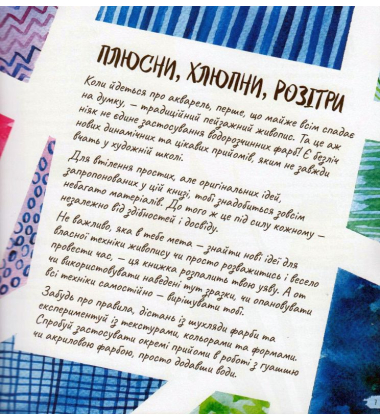 ПЛЮСНИ, ХЛЮПНИ, РОЗІТРИ
Коли йдеться про акварель, перше, що майже всім спадає
на думку, – традиційний пейзажний живопис. Та це аж
ніяк не єдине застосування водорозчинних фарб! Є безліч
нових динамічних та цікавих прийомів, яким не завжди
вчать у художній школі.
Для втілення простих, але оригінальних ідей,
запропонованих у цій книзі, тобі знадобиться зовсім
небагато матеріалів. До того ж це під силу кожному –
незалежно від здібностей і досвіду.
Не важливо, яка в тебе мета – знайти нові ідеї для
власної техніки живопису чи просто розважитись і весело
провести час, – ця книжка розпалить твою уяву. А от
чи використовувати наведені тут зразки, чи опановувати
всі техніки самостійно – вирішувати тобі.
Забудь про правила, дістань із шухляди фарби та
експериментуй із текстурами, кольорами та формами.
Спробуй застосувати окремі прийоми в роботі з гуашшю
чи акриловою фарбою, просто додавши води.